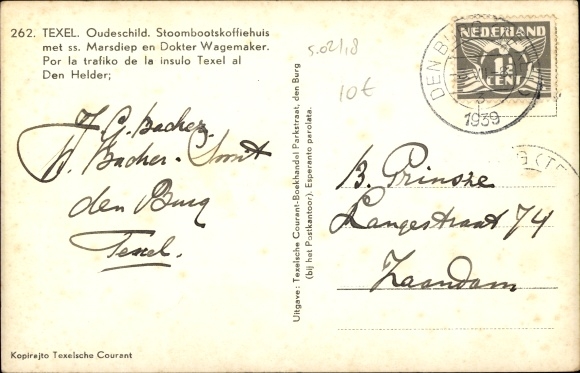 262. TEXEL. Oudeschild. Stoombootskoffiehuis
met ss. Marsdiep en Dokter Wagemaker.
Por la trafiko de la insulo Texel al
Den Helder;
J. G. Bacher.
Bacher - Smit
den Burg
Texel.
Kopirajto Texelsche Courant
Uitgave: Texelsche Courant-Boekhandel Parkstraat, den Burg
(bij het Postkantoor). Esperanto parolata.
5.02/18
10€
NEDERLAND
1½
CENT
DEN BU
1939
B. Prinsze
Langestraat 74
Zaandam